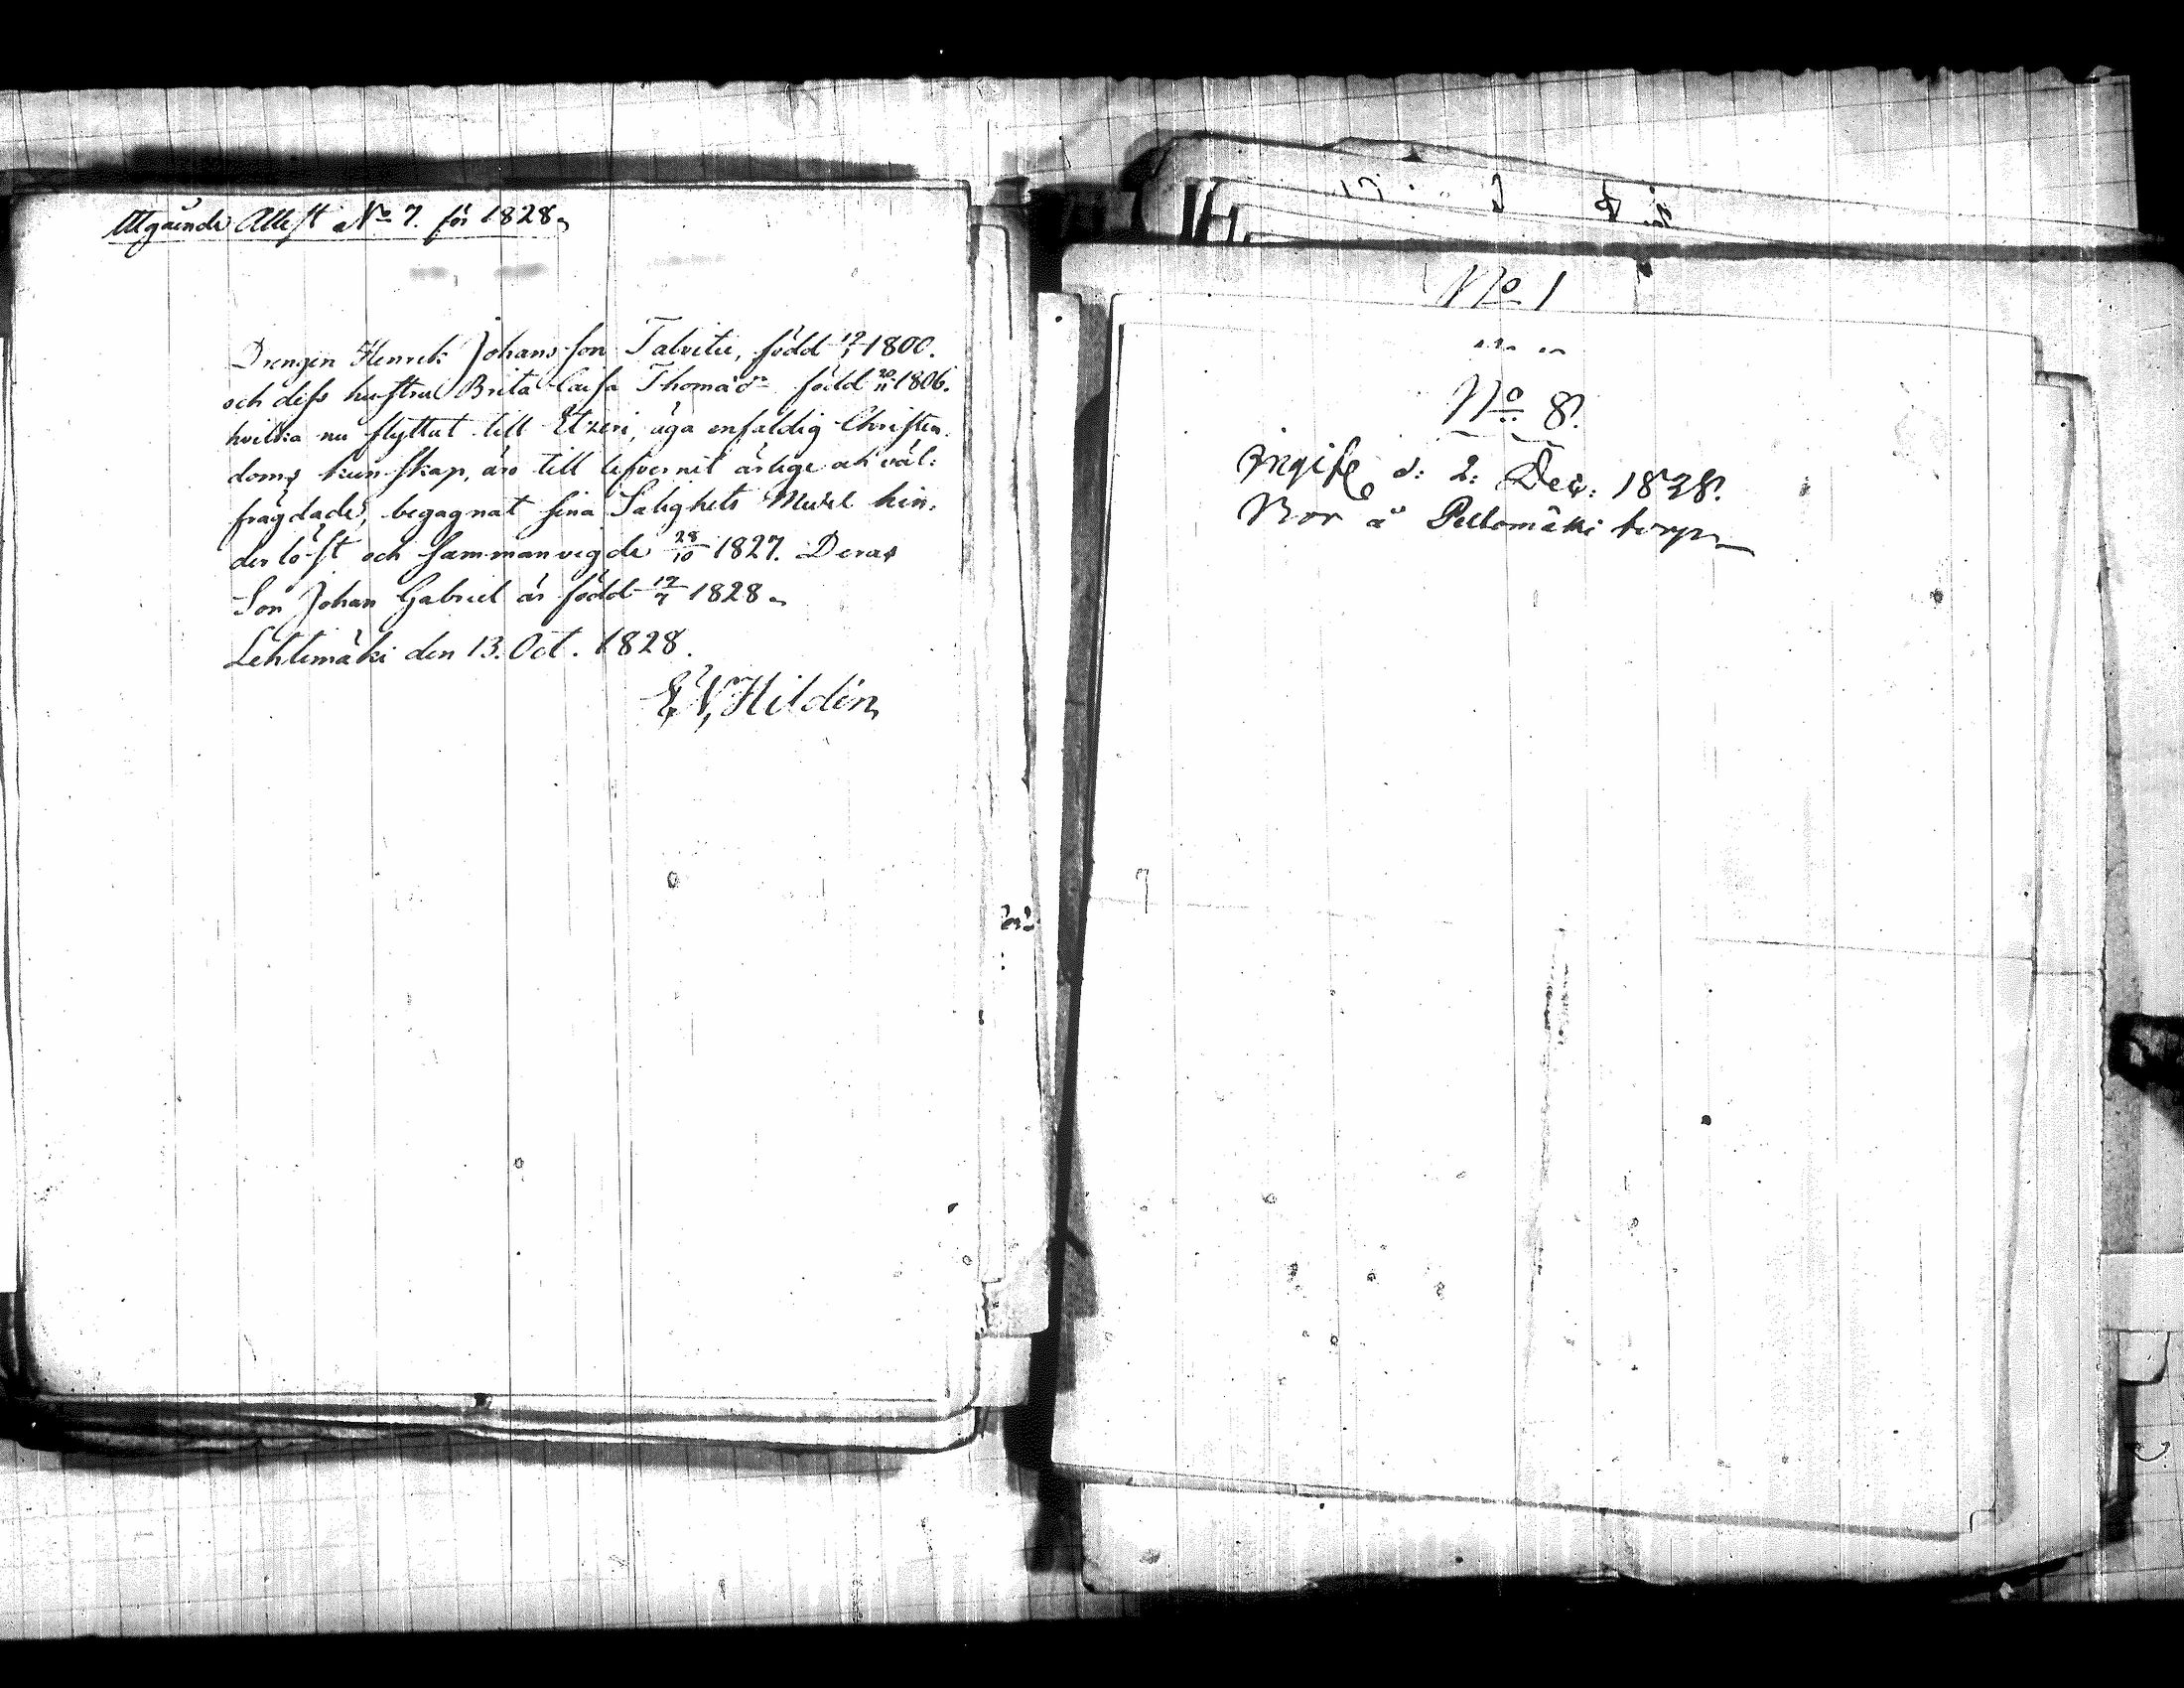 Utgående Attest No 7. för 1828.
Drengen Henrik Johansson Talvitie, född 12/1 1800.
och dess hustru Brita Caisa Thomasdr född 20/11 1806.
hvilka nu flyttat till Etzeri, äga enfaldig Christen-
doms kunskap, äro till lefvernet ärlige och väl-
frägdade, begagnat sina Salighets Medel hin-
derlöst och sammanvigde 28/10 1827. Deras
Son Johan Gabriel är född 12/7 1828.
Lehtimäki den 13. Oct. 1828.
Hildén
No 1
No 8.
Ingift d: 2: Dec: 1828.
Bor å Peltomäki torp